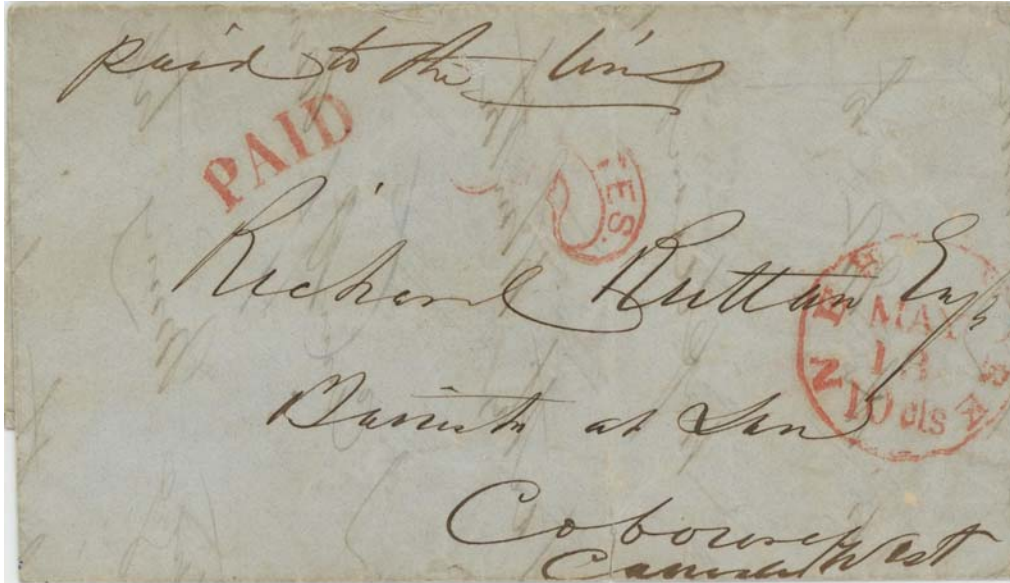 paid to the line
PAID
TES.
Richard Ruttan Esqr
NEW
MAY
10 cts
Barrister at Law
Cobourg
Canada West